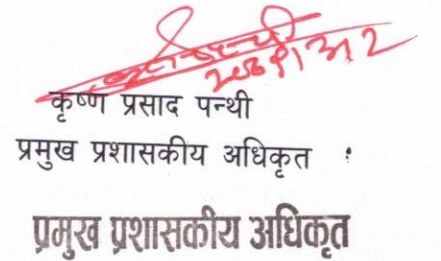 २०७९।३।२
कृष्ण प्रसाद पन्थी
प्रमुख प्रशासकीय अधिकृत
प्रमुख प्रशासकीय अधिकृत